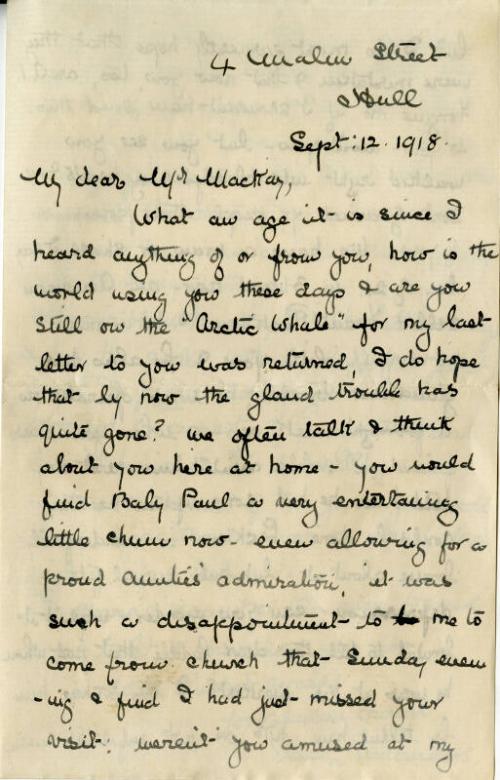 4 Malm Street
Hull
Sept: 12. 1918.
My dear Mr Mackay,
What an age it is since I
heard anything of or from you, how is the
world using you these days & are you
still on the "Arctic Whale" for my last
letter to you was returned, I do hope
that by now the gland trouble has
quite gone? we often talk & think
about you here at home - you would
find Baby Paul a very entertaing
little chum now - even allowing for a
proud Aunties' admiration, it was
such a disappointment to me to
come from church that Sunday even
-ing & find I had just missed your
visit: weren't you amused at my